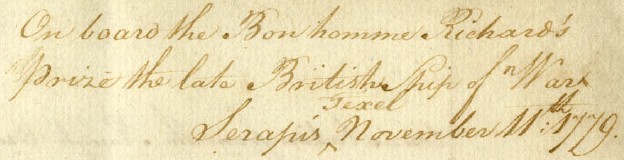 On board the Bon homme Richard's
Prize the late British Ship of War
Serapis, Texel November 11th: 1779.